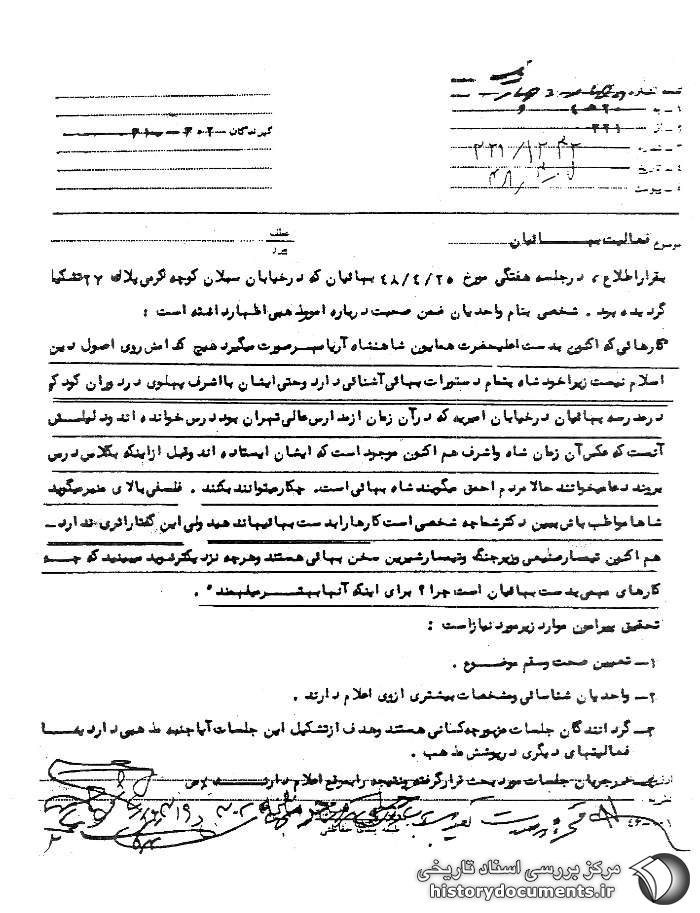 گیرندگان ۳۰۲
۱ـ به
۲ـ از ۳۲۱
۳ـ شماره
۴ـ تاریخ
۵ـ پیوست
موضوع فعالیت بهائیان
عطف
پیرو
بقرار اطلاع ، در جلسه هفتگی مورخ ۴۸/۴/۲۵ بهائیان که در خیابان سبلان کوچه کرمی پلاک ۲۷ تشکیل
گردیده بود . شخصی بنام واحدیان ضمن صحبت درباره امور مذهبی اظهار داشته است :
کارهائی که اکنون بدست اعلیحضرت همایون شاهنشاه آریامهر صورت میگیرد هیچ کدامش روی اصول دین
اسلام نیست زیرا خود شاه بتمام دستورات بهائی آشنائی دارد و حتی ایشان با اشرف پهلوی در دوران کودکی
در مدرسه بهائیان در خیابان امیریه که در آن زمان از مدارس عالی تهران بود درس خوانده اند و دلیلش
آنست که عکس آن زمان شاه و اشرف هم اکنون موجود است که ایشان ایستاده اند و قبل از اینکه بکلاس درس
بروند دعا میخوانند حالا مردم احمق میگویند شاه بهائی است. چکار میتوانند بکنند . فلسفی بالای منبر میگوید
شاها مواظب باش ببین دکتر شما چه شخصی است کارها را بدست بهائیها ندهید ولی این گفتار اثری ندارد ـ
هم اکنون تیمسار صنیعی وزیر جنگ و تیمسار شیرین سخن بهائی هستند و هر چه نزدیکتر شوید میبینید که همه
کارهای مهمی بدست بهائیان است چرا ؟ برای اینکه آنها بهتر میفهمند " .
تحقیق پیرامون موارد زیر مورد نیاز است :
۱ـ تعیین صحت و سقم موضوع .
۲ـ واحدیان شناسائی و مشخصات بیشتری از وی اعلام دارند .
۳ـ گردانندگان جلسات مزبور چه کسانی هستند و هدف از تشکیل این جلسات آیا جنبه مذهبی دارد یا
فعالیتهای دیگری در پوشش مذهب .
جریان جلسات مورد بحث قرار گرفته و نتیجه را بموقع اعلام دارند
مرکز بررسی اسناد تاریخی
historydocuments.ir